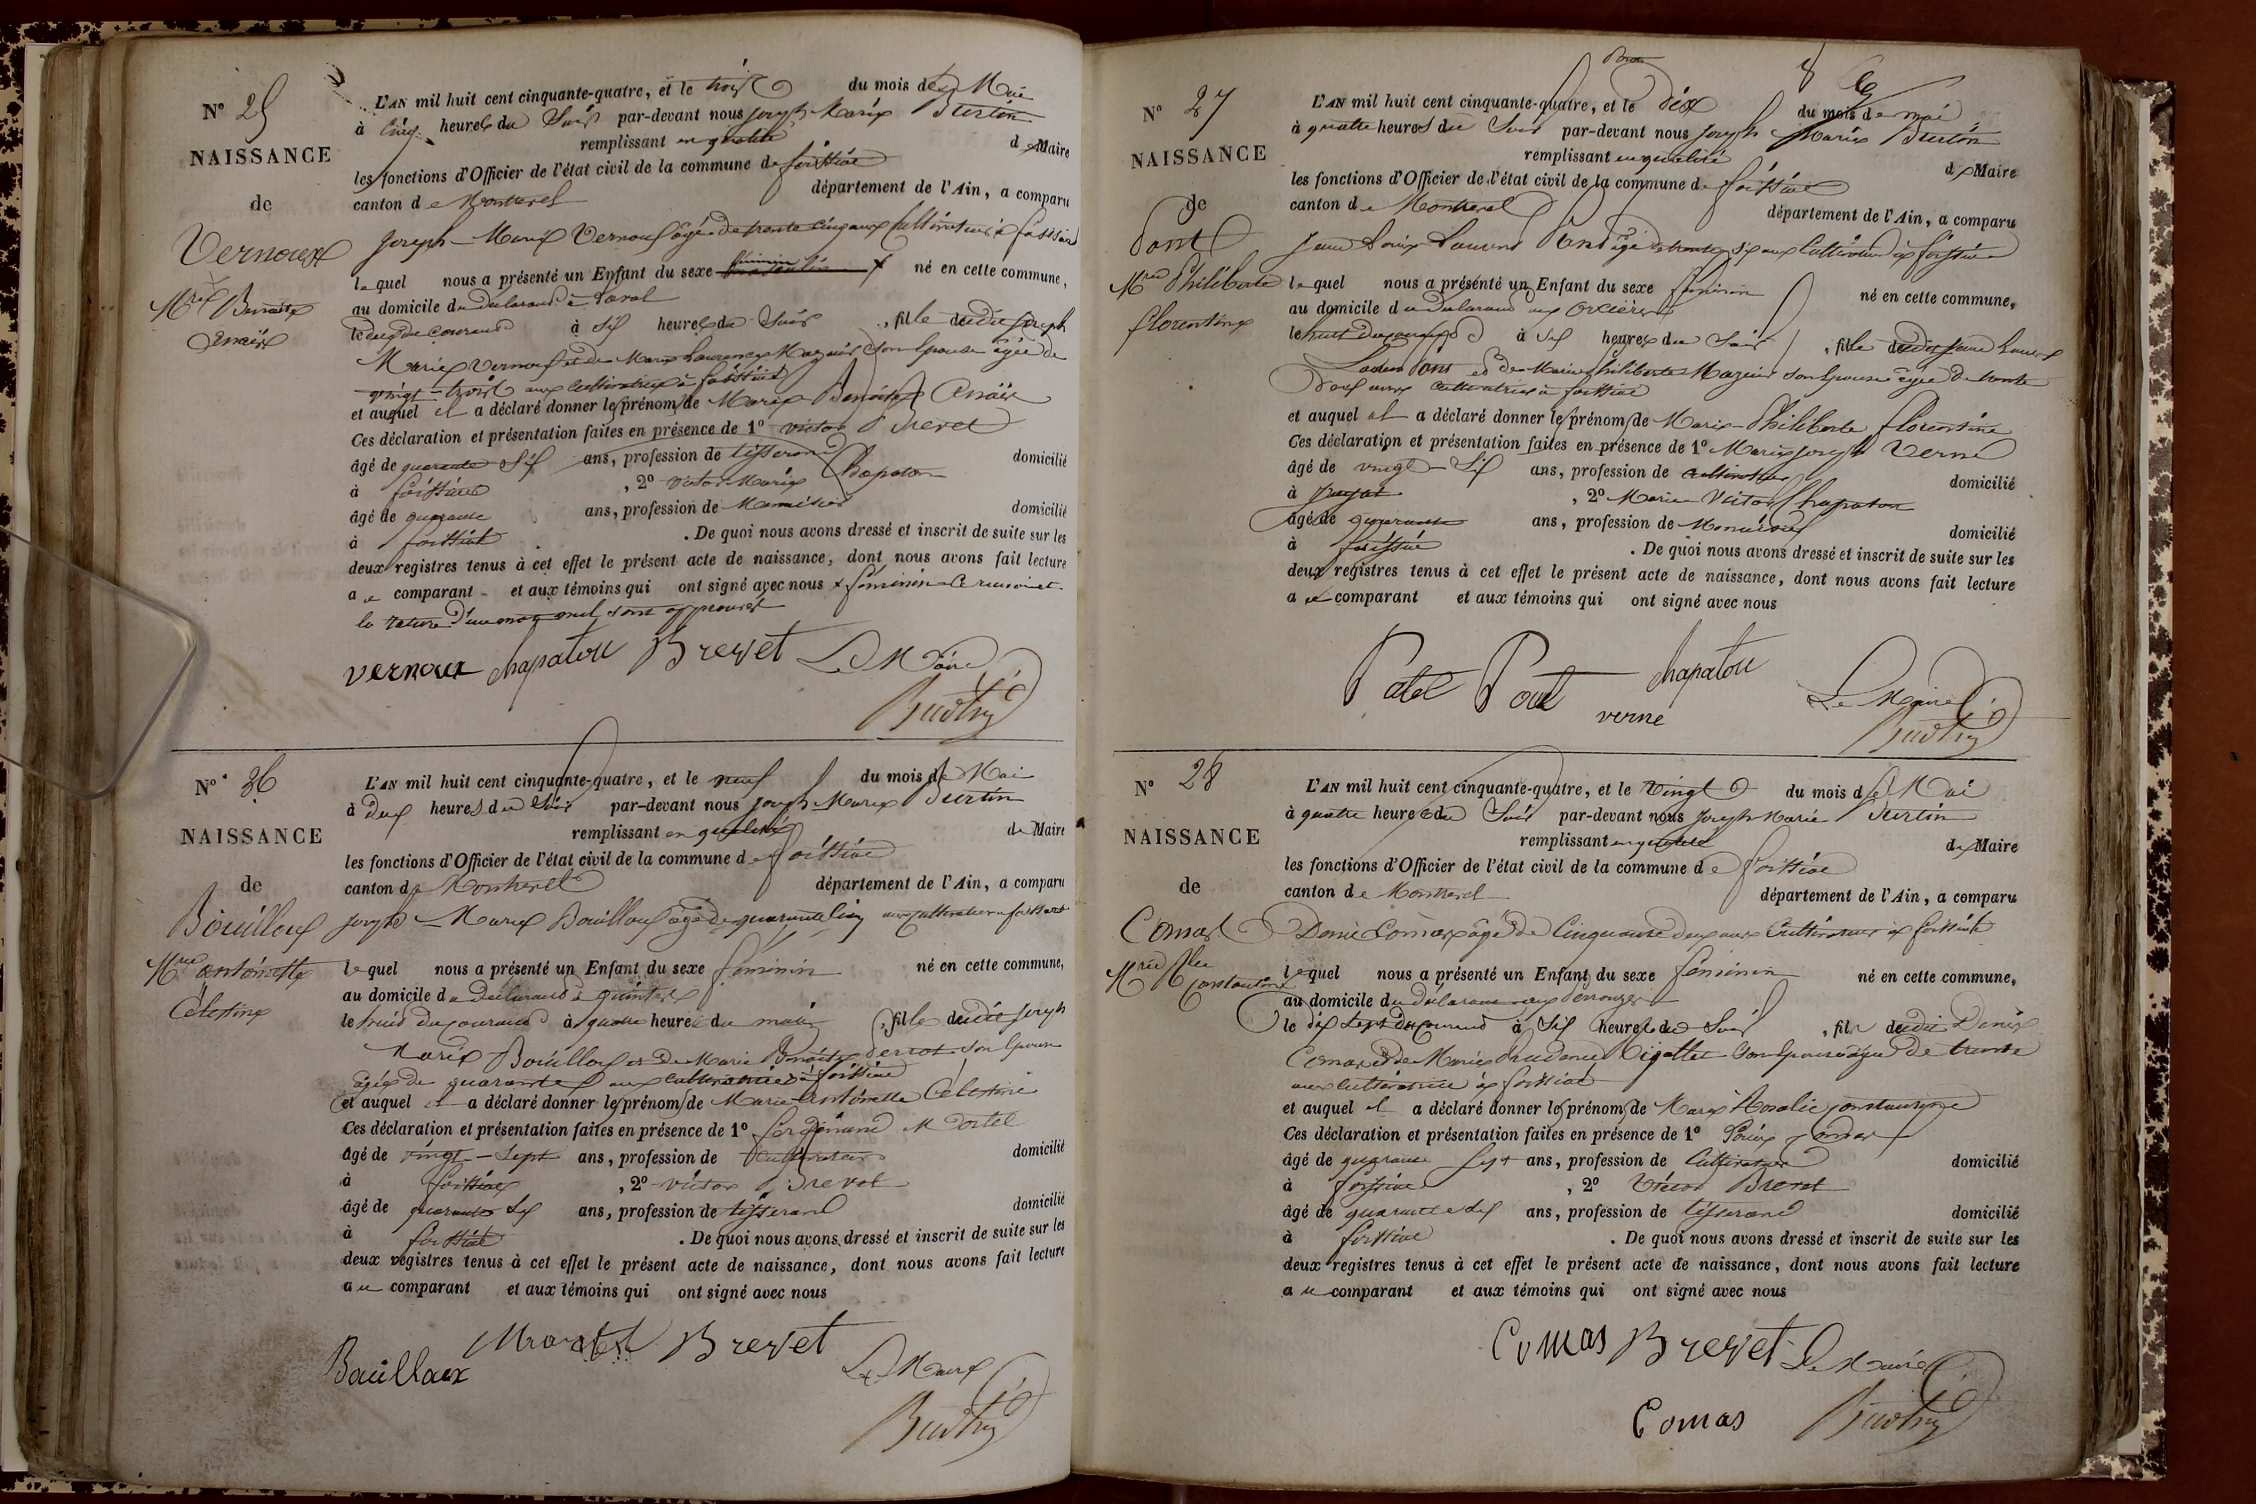 N° 25
NAISSANCE
de
Vernoux
Mie Benoite
L'AN mil huit cent cinquante-quatre, et le trois du mois de Mai
à cinq heures du Soir par-devant nous Joseph Marie Burtin
remplissant en qualité de Maire
les fonctions d'Officier de l'état civil de la commune de foissiat
canton de Montrevel département de l'Ain, a comparu
Joseph-Marie Vernoux âgé de trente cinq ans Cultivateur à foissiat
lequel nous a présenté un Enfant du sexe né en cette commune,
au domicile du Déclarant à
le du courant à Six heures du Soir, fille dudit Joseph
Marie Vernoux et de Marie Laurence son Epouse âgée de
vingt-trois ans cultivatrice à foissiat
et auquel il a déclaré donner les prénoms de Marie Benoite
Ces déclaration et présentation faites en présence de 1° Victor Brevet
âgé de quarante Six ans, profession de tisserand domicilié
à foissiat, 2° Victor Marie Chapaton
âgé de quarante ans, profession de Menuisier domicilié
à foissiat. De quoi nous avons dressé et inscrit de suite sur les
deux registres tenus à cet effet le présent acte de naissance, dont nous avons fait lecture
au comparant et aux témoins qui ont signé avec nous x féminin Ce renvoi et
la rature d'un mot nul sont approuvés
vernoux chapatou Brevet Le Maire
Burtin
N° 26
NAISSANCE
de
Bouilloux
Mie antoinette
Célestine
L'AN mil huit cent cinquante-quatre, et le neuf du mois de Mai
à Deux heures du Soir par-devant nous Joseph Marie Burtin
remplissant en qualité de Maire
les fonctions d'Officier de l'état civil de la commune de foissiat
canton de Montrevel département de l'Ain, a comparu
Joseph-Marie Bouilloux âgé de quarante cinq ans Cultivateur à foissiat
lequel nous a présenté un Enfant du sexe féminin né en cette commune,
au domicile du Déclarant à
le huit du courant à quatre heures du matin, fille dudit Joseph
Marie Bouilloux et de Marie Benoite son Epouse
âgée de quarante ans cultivatrice à foissiat
et auquel il a déclaré donner les prénoms de Marie Antoinette Célestine
Ces déclaration et présentation faites en présence de 1° ferdinand Martel
âgé de vingt-Sept ans, profession de Cultivateur domicilié
à foissiat, 2° Victor Brevet
âgé de quarante Six ans, profession de tisserand domicilié
à foissiat. De quoi nous avons dressé et inscrit de suite sur les
deux registres tenus à cet effet le présent acte de naissance, dont nous avons fait lecture
au comparant et aux témoins qui ont signé avec nous
Bouilloux Martel Brevet Le Maire
Burtin
N° 27
NAISSANCE
de
Pont
Mie Philiberte
florentine
L'AN mil huit cent cinquante-quatre, et le dix du mois de mai
à quatre heures du Soir par-devant nous Joseph Marie Burtin
remplissant en qualité de Maire
les fonctions d'Officier de l'état civil de la commune de foissiat
canton de Montrevel département de l'Ain, a comparu
Jean Louis Laurent Pont âgé de trente Six ans Cultivateur à foissiat
lequel nous a présenté un Enfant du sexe féminin né en cette commune,
au domicile du Déclarant
le huit du courant à Six heures du Soir, fille dudit Jean Louis
Laurent Pont et de Marie Philiberte son Epouse âgée de trente
Deux ans cultivatrice à foissiat
et auquel il a déclaré donner les prénoms de Marie Philiberte florentine
Ces déclaration et présentation faites en présence de 1° Marie Joseph Verne
âgé de vingt-Six ans, profession de cultivateur domicilié
à, 2° Marie Victor Chapaton
âgé de quarante ans, profession de Menuisier domicilié
à foissiat. De quoi nous avons dressé et inscrit de suite sur les
deux registres tenus à cet effet le présent acte de naissance, dont nous avons fait lecture
au comparant et aux témoins qui ont signé avec nous
Pont chapatou
verne Le Maire
Burtin
N° 28
NAISSANCE
de
Comas
Mie Rlie
Constantine
L'AN mil huit cent cinquante-quatre, et le vingt du mois de Mai
à quatre heures du Soir par-devant nous Joseph Marie Burtin
remplissant en qualité de Maire
les fonctions d'Officier de l'état civil de la commune de foissiat
canton de Montrevel département de l'Ain, a comparu
Denis Comas âgé de Cinquante deux ans Cultivateur à foissiat
lequel nous a présenté un Enfant du sexe féminin né en cette commune,
au domicile du déclarant aux
le dix Sept du courant à Six heures du Soir, fille dudit Denis
Comas et de Marie Prudence son Epouse âgée de trente
ans cultivatrice à foissiat
et auquel il a déclaré donner les prénoms de Marie Rosalie Constantine
Ces déclaration et présentation faites en présence de 1° Comas
âgé de quarante Sept ans, profession de Cultivateur domicilié
à foissiat, 2° Victor Brevet
âgé de quarante Six ans, profession de tisserand domicilié
à foissiat. De quoi nous avons dressé et inscrit de suite sur les
deux registres tenus à cet effet le présent acte de naissance, dont nous avons fait lecture
au comparant et aux témoins qui ont signé avec nous
Comas Brevet Le Maire
Comas Burtin